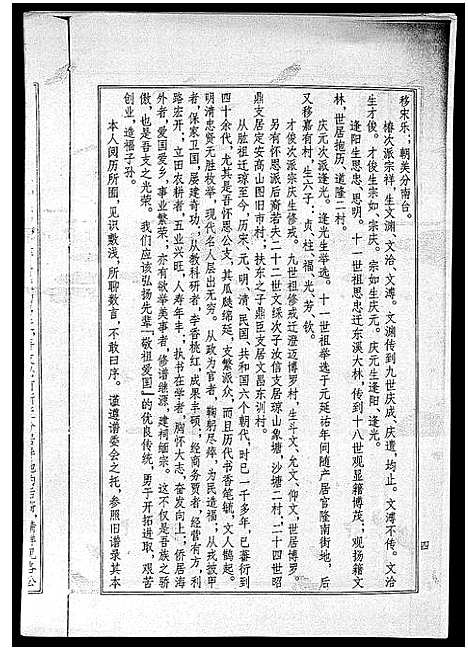 移宋乐；朝美分南台。
椿次派宗祥，生文渊、文洽、文溥。文渊传到九世庆成、庆遗，均止。文溥不传。文洽
生才俊。才俊生宗如、宗庆。宗如生庆元。庆元生逢阳、逢光。
逢阳生思忠、思明。十一世祖思忠迁东溪大林，传到十八世观显籍博茂；观扬籍文
林，世居抱历、道隆二村。
庆元次派逢光。逢光生举选。十一世祖举选于元延祐年间随产居官隆南街地，后
又移嘉有村，生六子：贞、柱、福、光、芳、钦。
才俊次派宗庆生修戒。九世祖修戒迁澄迈博罗村，生斗文、允文、仰文，世居博罗。
另有怀恩派后裔若夫二十二世文绥次子汝信支居琼山象塘，沙塘二村；二十四世昭
鼎支居定安高山图旧市村；扶东之子鼎臣支居文昌东训村。
从肱祖迁琼至今，历宋、元、明、清、民国、共和国六个朝代，时已一千多年，已蕃衍到
四十余代。尤其是吾怀恩公支，其瓜瓞绵延，支繁派众，而且历代书香笔毓，文人鹊起。
明清忠贤元胜枚举，现代名人层出无穷。从政为官者，鞠躬尽瘁，为民造福；从戎披甲
者，保家卫国，屡建奇功；从教科研者，李香桃红，成果丰硕；经商务贾者，经营有方，利
路宏开；立田农耕者，五业兴旺，人寿年丰；执书在学者，胸怀大志，奋发向上；侨居海
外者，爱国爱乡，事业繁荣；亦有欲举美事者，修谱继源，建祠缅宗。这不仅是吾族之骄
傲，也是吾支之光荣。我们应该弘扬先辈『敬祖爱国』的优良传统，勇于开拓进取，艰苦
创业，造福子孙。
本人阅历所囿，见识敷浅，所聊数言，不敢曰序。谨遵谱委会之托，参照旧谱录其本
四